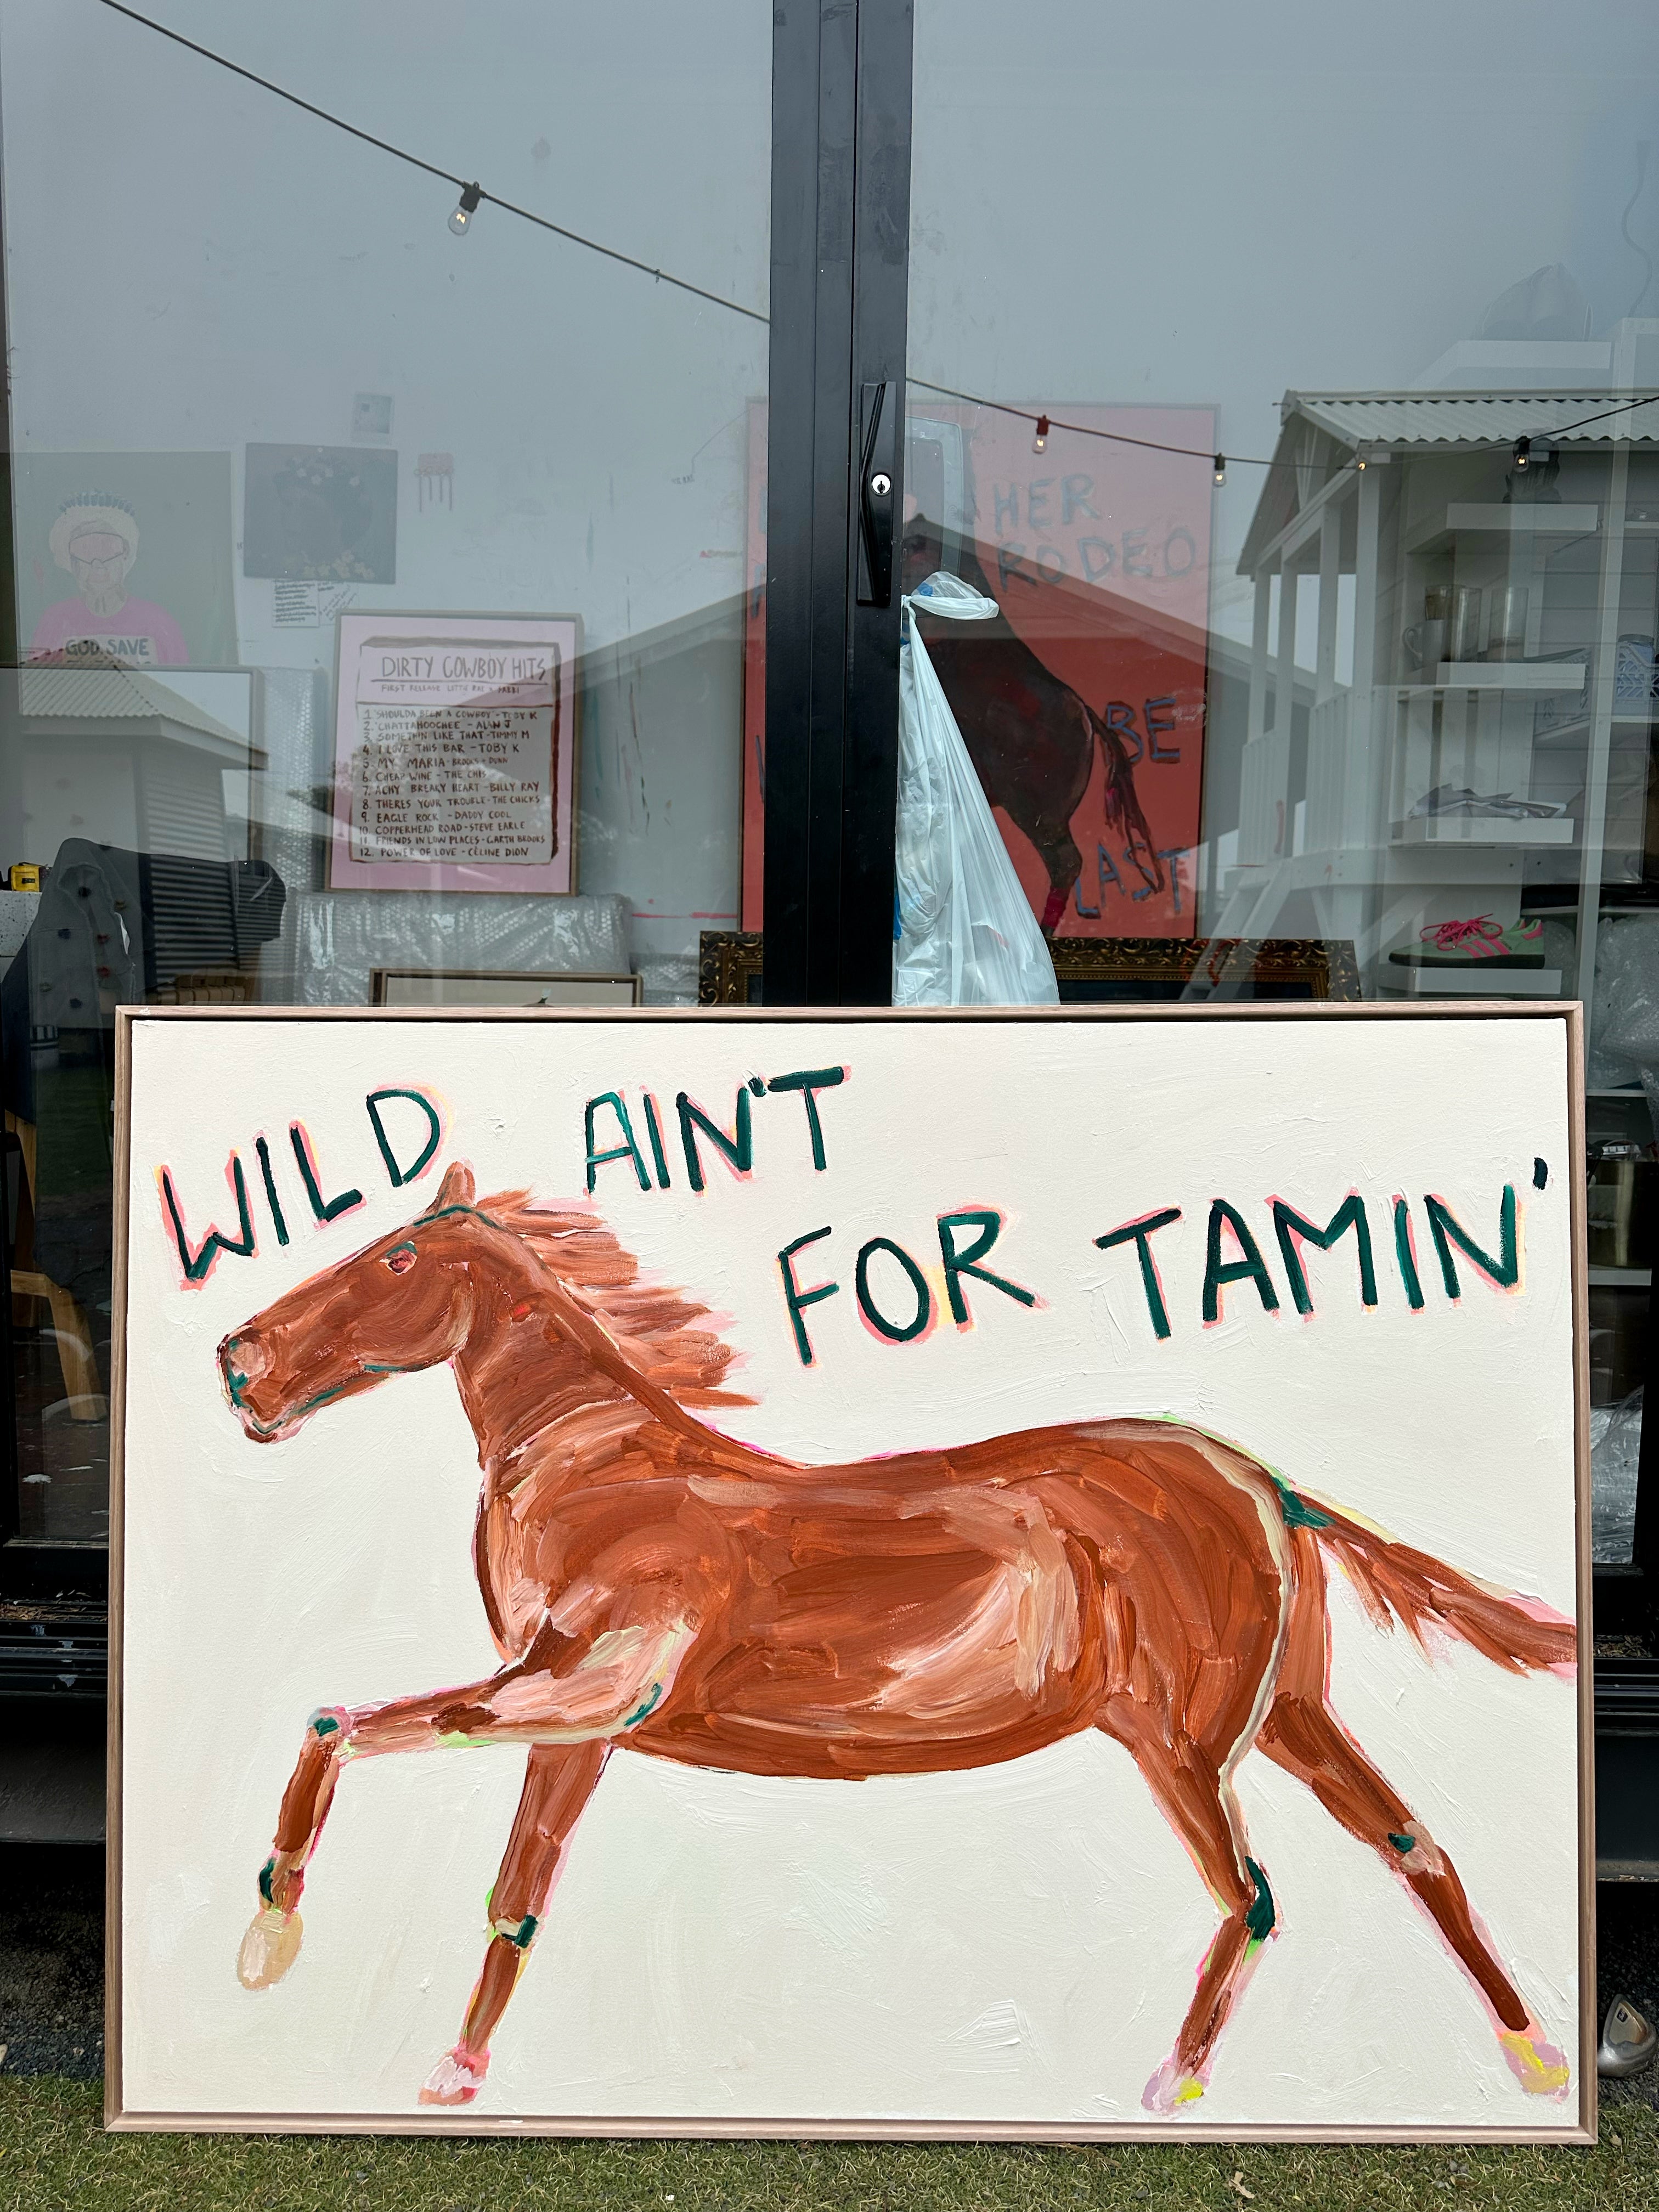 HER
RODEO
BE
LAST
GOD SAVE
DIRTY COWBOY HITS
1. SHOULDA BEEN A COWBOY - TOBY K
2. CHATTAHOOCHEE - ALAN J
3. SOMETHIN LIKE THAT - TIMMY M
4. I LOVE THIS BAR - TOBY K
5. MY MARIA - BROOKS + DUNN
6. CHEAP WINE - THE CHIS
7. ACHY BREAKY HEART - BILLY RAY
8. THERES YOUR TROUBLE - THE CHICKS
9. EAGLE ROCK - DADDY COOL
10. COPPERHEAD ROAD - STEVE EARLE
11. FRIENDS IN LOW PLACES - GARTH BROOKS
12. POWER OF LOVE - CÉLINE DION
WILD AIN'T
FOR TAMIN'